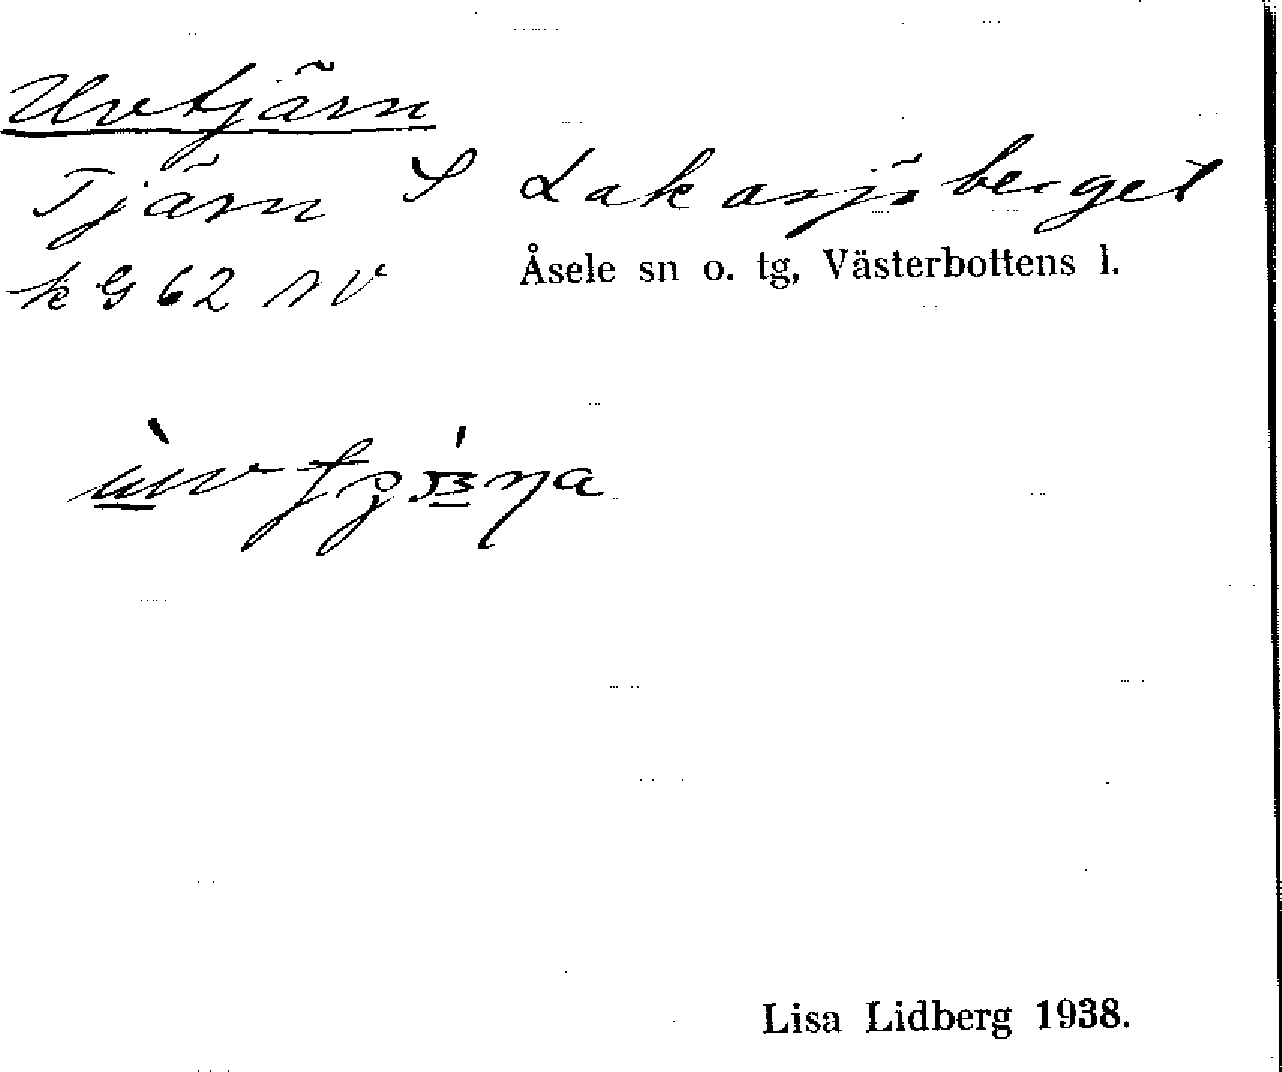 Uvtjärn
Tjärn S Lakasjöberget
Åsele sn o. tg, Västerbottens l.
k G 62 NV
Lisa Lidberg 1938.